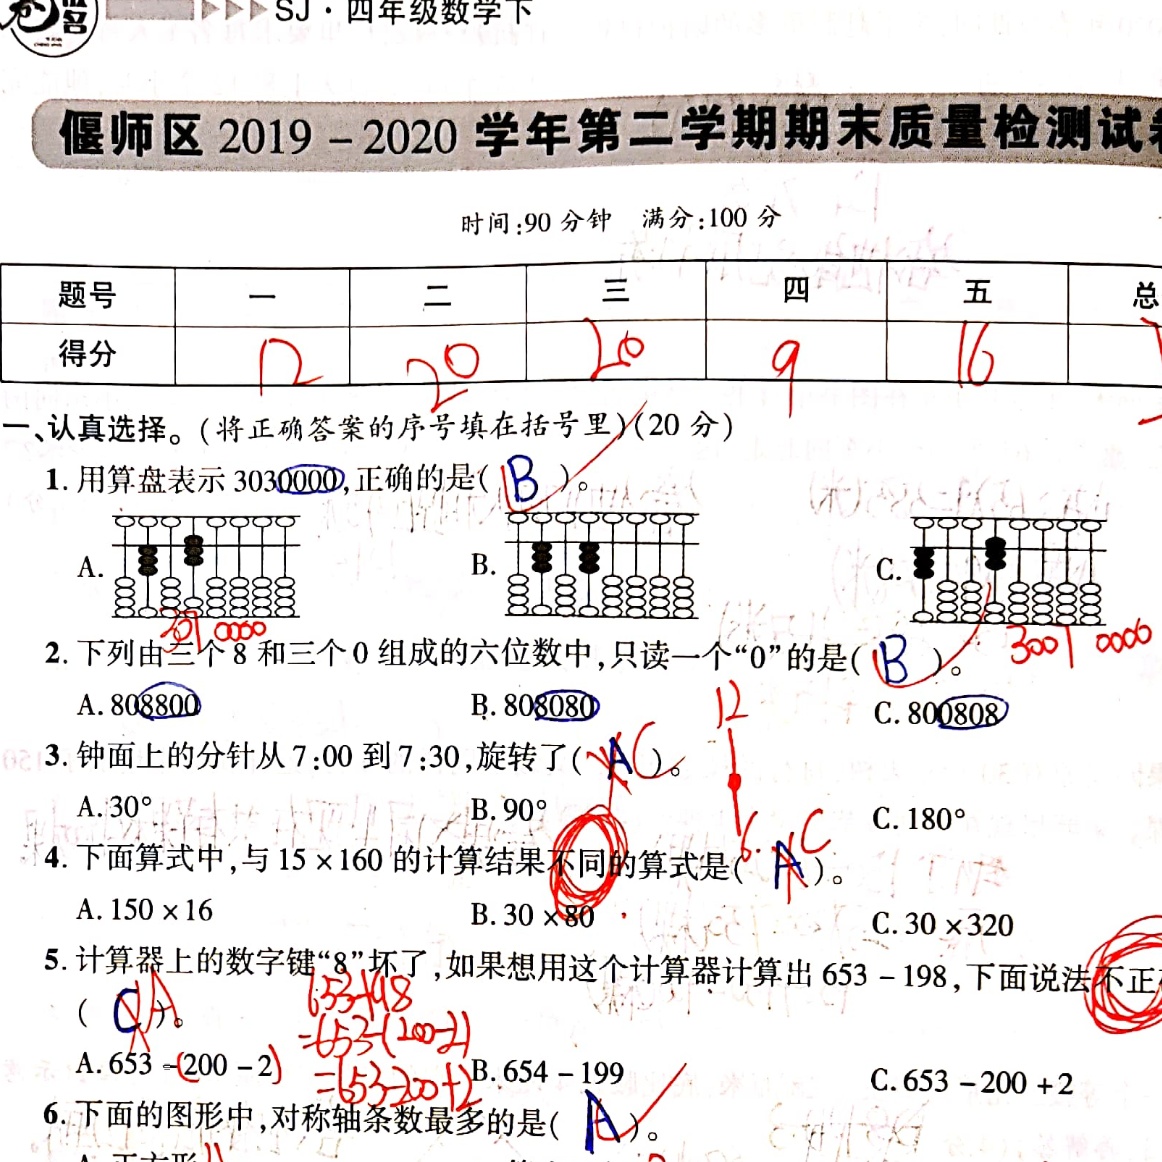 SJ·四年级数学下
偃师区 2019－2020 学年第二学期期末质量检测试卷
时间:90 分钟 满分:100 分
题号 一 二 三 四 五 总
得分 12 20 20 9 16
一、认真选择。(将正确答案的序号填在括号里)(20 分)
1. 用算盘表示 3030000,正确的是( B )。
A. B. C.
301 0000 3001 0000
2. 下列由三个 8 和三个 0 组成的六位数中,只读一个“0”的是( B )。
A. 808800 B. 808080 C. 800808
12
3. 钟面上的分针从 7:00 到 7:30,旋转了( A C )。
A. 30° B. 90° C. 180°
6
4. 下面算式中,与 15×160 的计算结果不同的算式是( A C )。
A. 150×16 B. 30×80 C. 30×320
5. 计算器上的数字键“8”坏了,如果想用这个计算器计算出 653－198,下面说法不正
( C A )。
653-198
=653-(200-2)
=653-200+2
A. 653－(200－2) B. 654－199 C. 653－200＋2
6. 下面的图形中,对称轴条数最多的是( A )。
A. 正方形